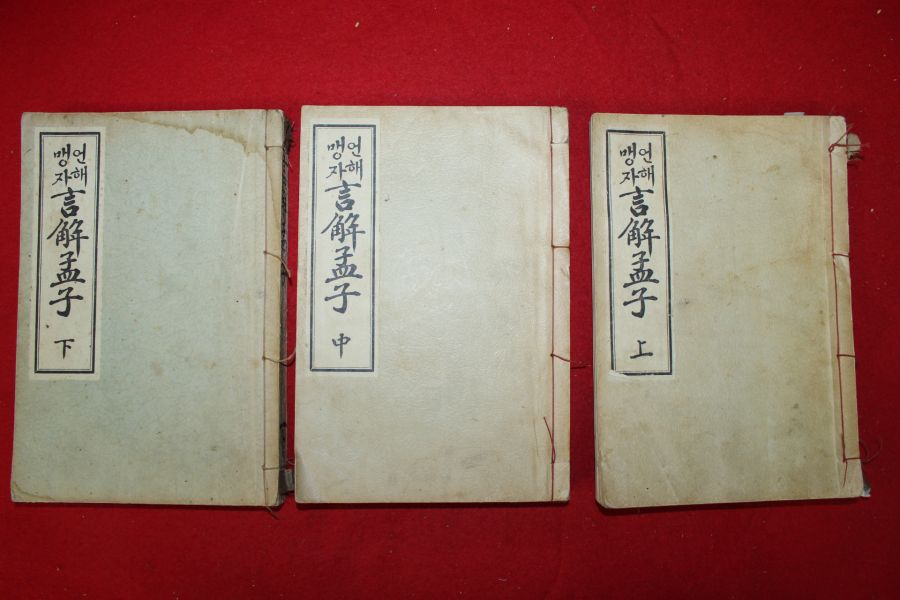 언해
맹자
言解孟子
上
언해
맹자
言解孟子
中
언해
맹자
言解孟子
下